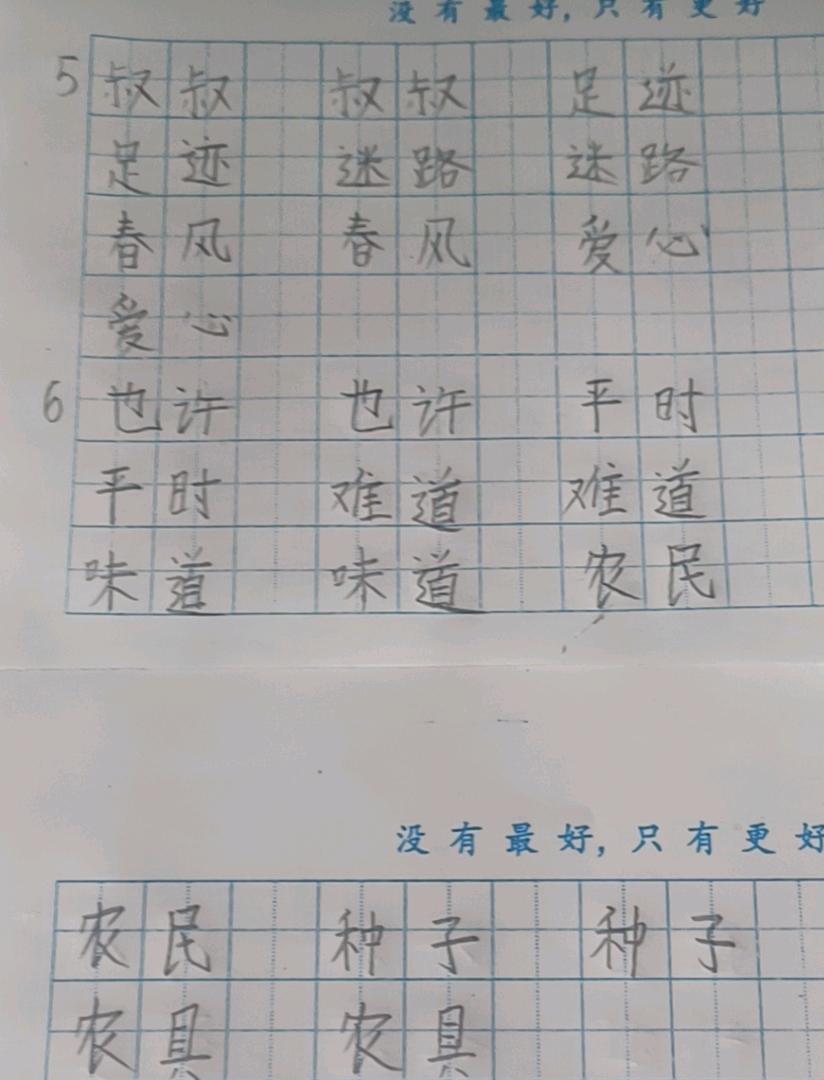 没有最好，只有更好
5 叔叔 叔叔 足迹
足迹 迷路 迷路
春风 春风 爱心
爱心
6 也许 也许 平时
平时 难道 难道
味道 味道 农民
没有最好，只有更好
农民 种子 种子
农具 农具